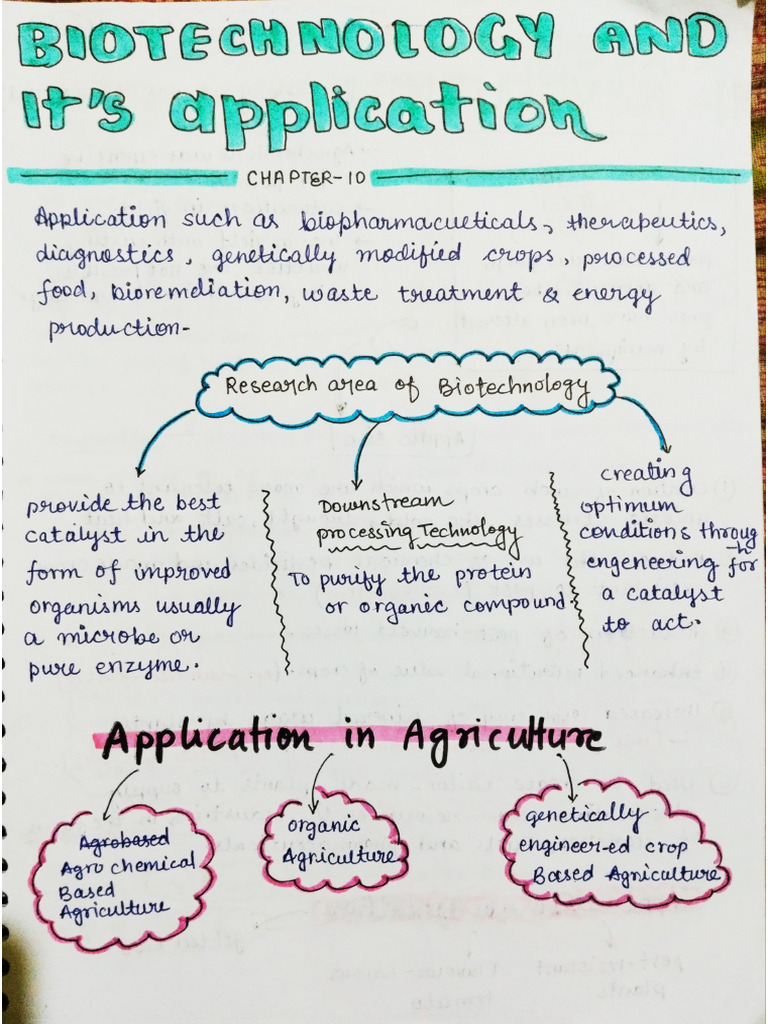 BIOTECHNOLOGY AND
It's application
CHAPTER-10
Application such as biopharmacueticals, therapeutics,
diagnostics, genetically modified crops, processed
food, bioremdiation, waste treatment & energy
production-
Research area of Biotechnology
provide the best
catalyst in the
form of improved
organisms usually
a microbe or
pure enzyme.
Downstream
processing Technology
To purify the protein
or organic compound.
creating
optimum
conditions throug
h
engeneering for
a catalyst
to act.
Application in Agriculture
Agrobased
Agro chemical
Based
Agriculture
organic
Agriculture
genetically
engineer-ed crop
Based Agriculture